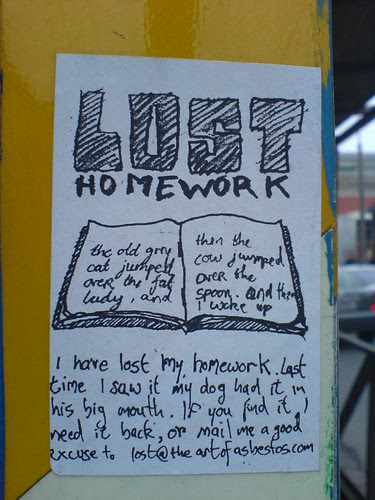 LOST
HOMEWORK
the old grey
cat jumped
over the fat
lady, and
then the
cow jumped
over the
spoon. And then
I woke up
I have lost my homework. Last
time I saw it my dog had it in
his big mouth. If you find it, I
need it back, or mail me a good
excuse to lost@theartofasbestos.com